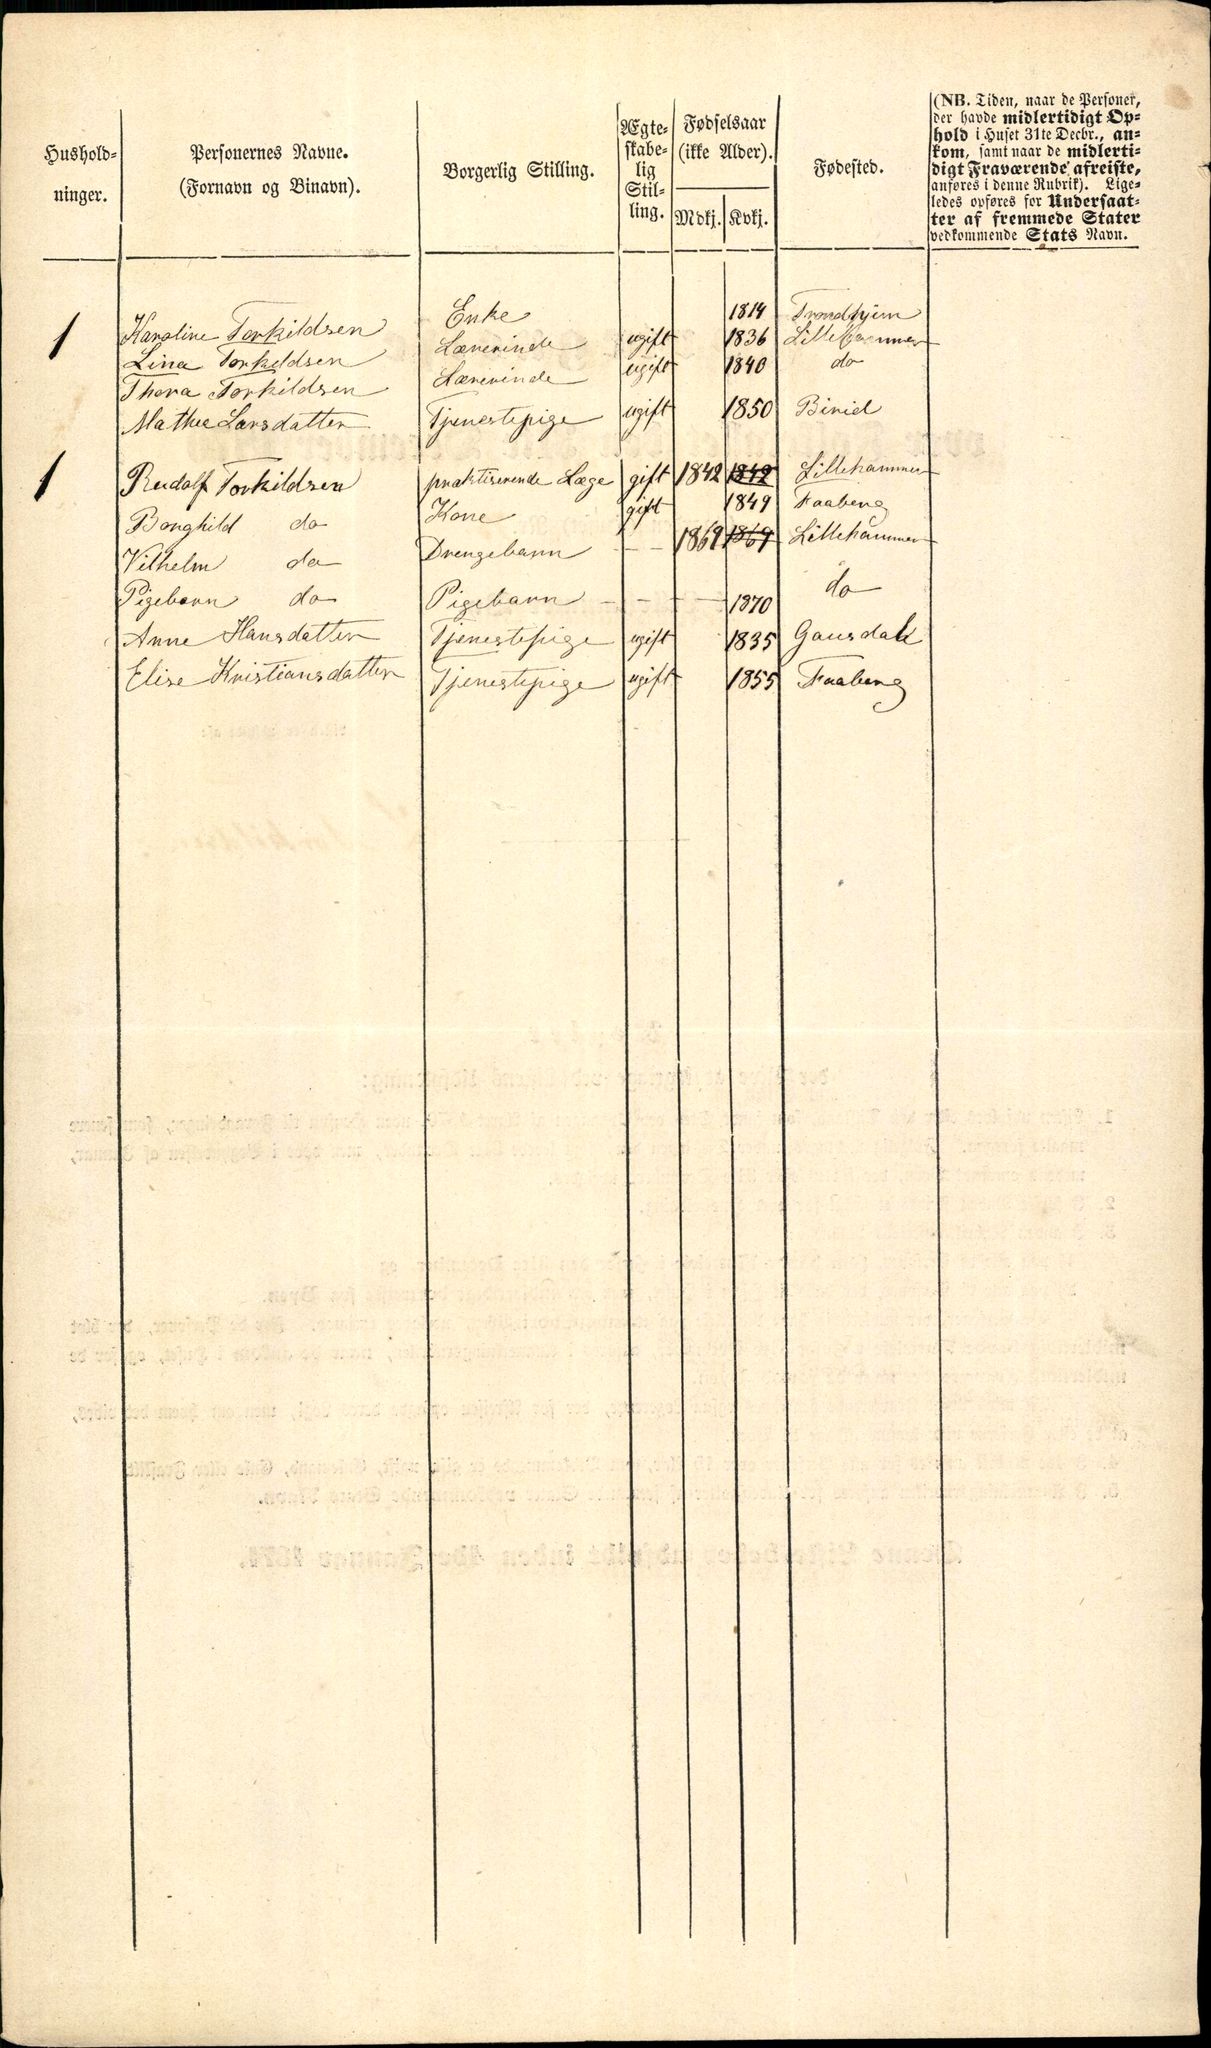 Hushold-
ninger.
Personernes Navne.
(Fornavn og Binavn).
Borgerlig Stilling.
Ægte-
skabe-
lig
Stil-
ling.
Fødselsaar
(ikke Alder).
Mdkj. Kvkj.
Fødested.
(NB. Tiden, naar de Personer,
der havde midlertidigt Op-
hold i Huset 31te Decbr., an-
kom, samt naar de midlerti-
digt Fraværende afreiste,
anføres i denne Rubrik). Lige-
ledes opføres for Undersaat-
ter af fremmede Stater
vedkommende Stats Navn.
1 Karoline Torkildsen Enke 1814 Trondhjem
Lina Torkildsen Lærerinde ugift 1836 Lillehammer
Thora Torkildsen Lærerinde ugift 1840 do
Mathea Larsdatter Tjenestepige ugift 1850 Birid
1 Rudolf Torkildsen praktiserende Læge gift 1842 1842 Lillehammer
Borghild do Kone gift 1849 Faaberg
Vilhelm do Drengebarn – – 1869 1869 Lillehammer
Pigebarn do Pigebarn – – – 1870 do
Anne Hansdatter Tjenestepige ugift 1835 Gausdal
Elise Kristiansdatter Tjenestepige ugift 1855 Faaberg